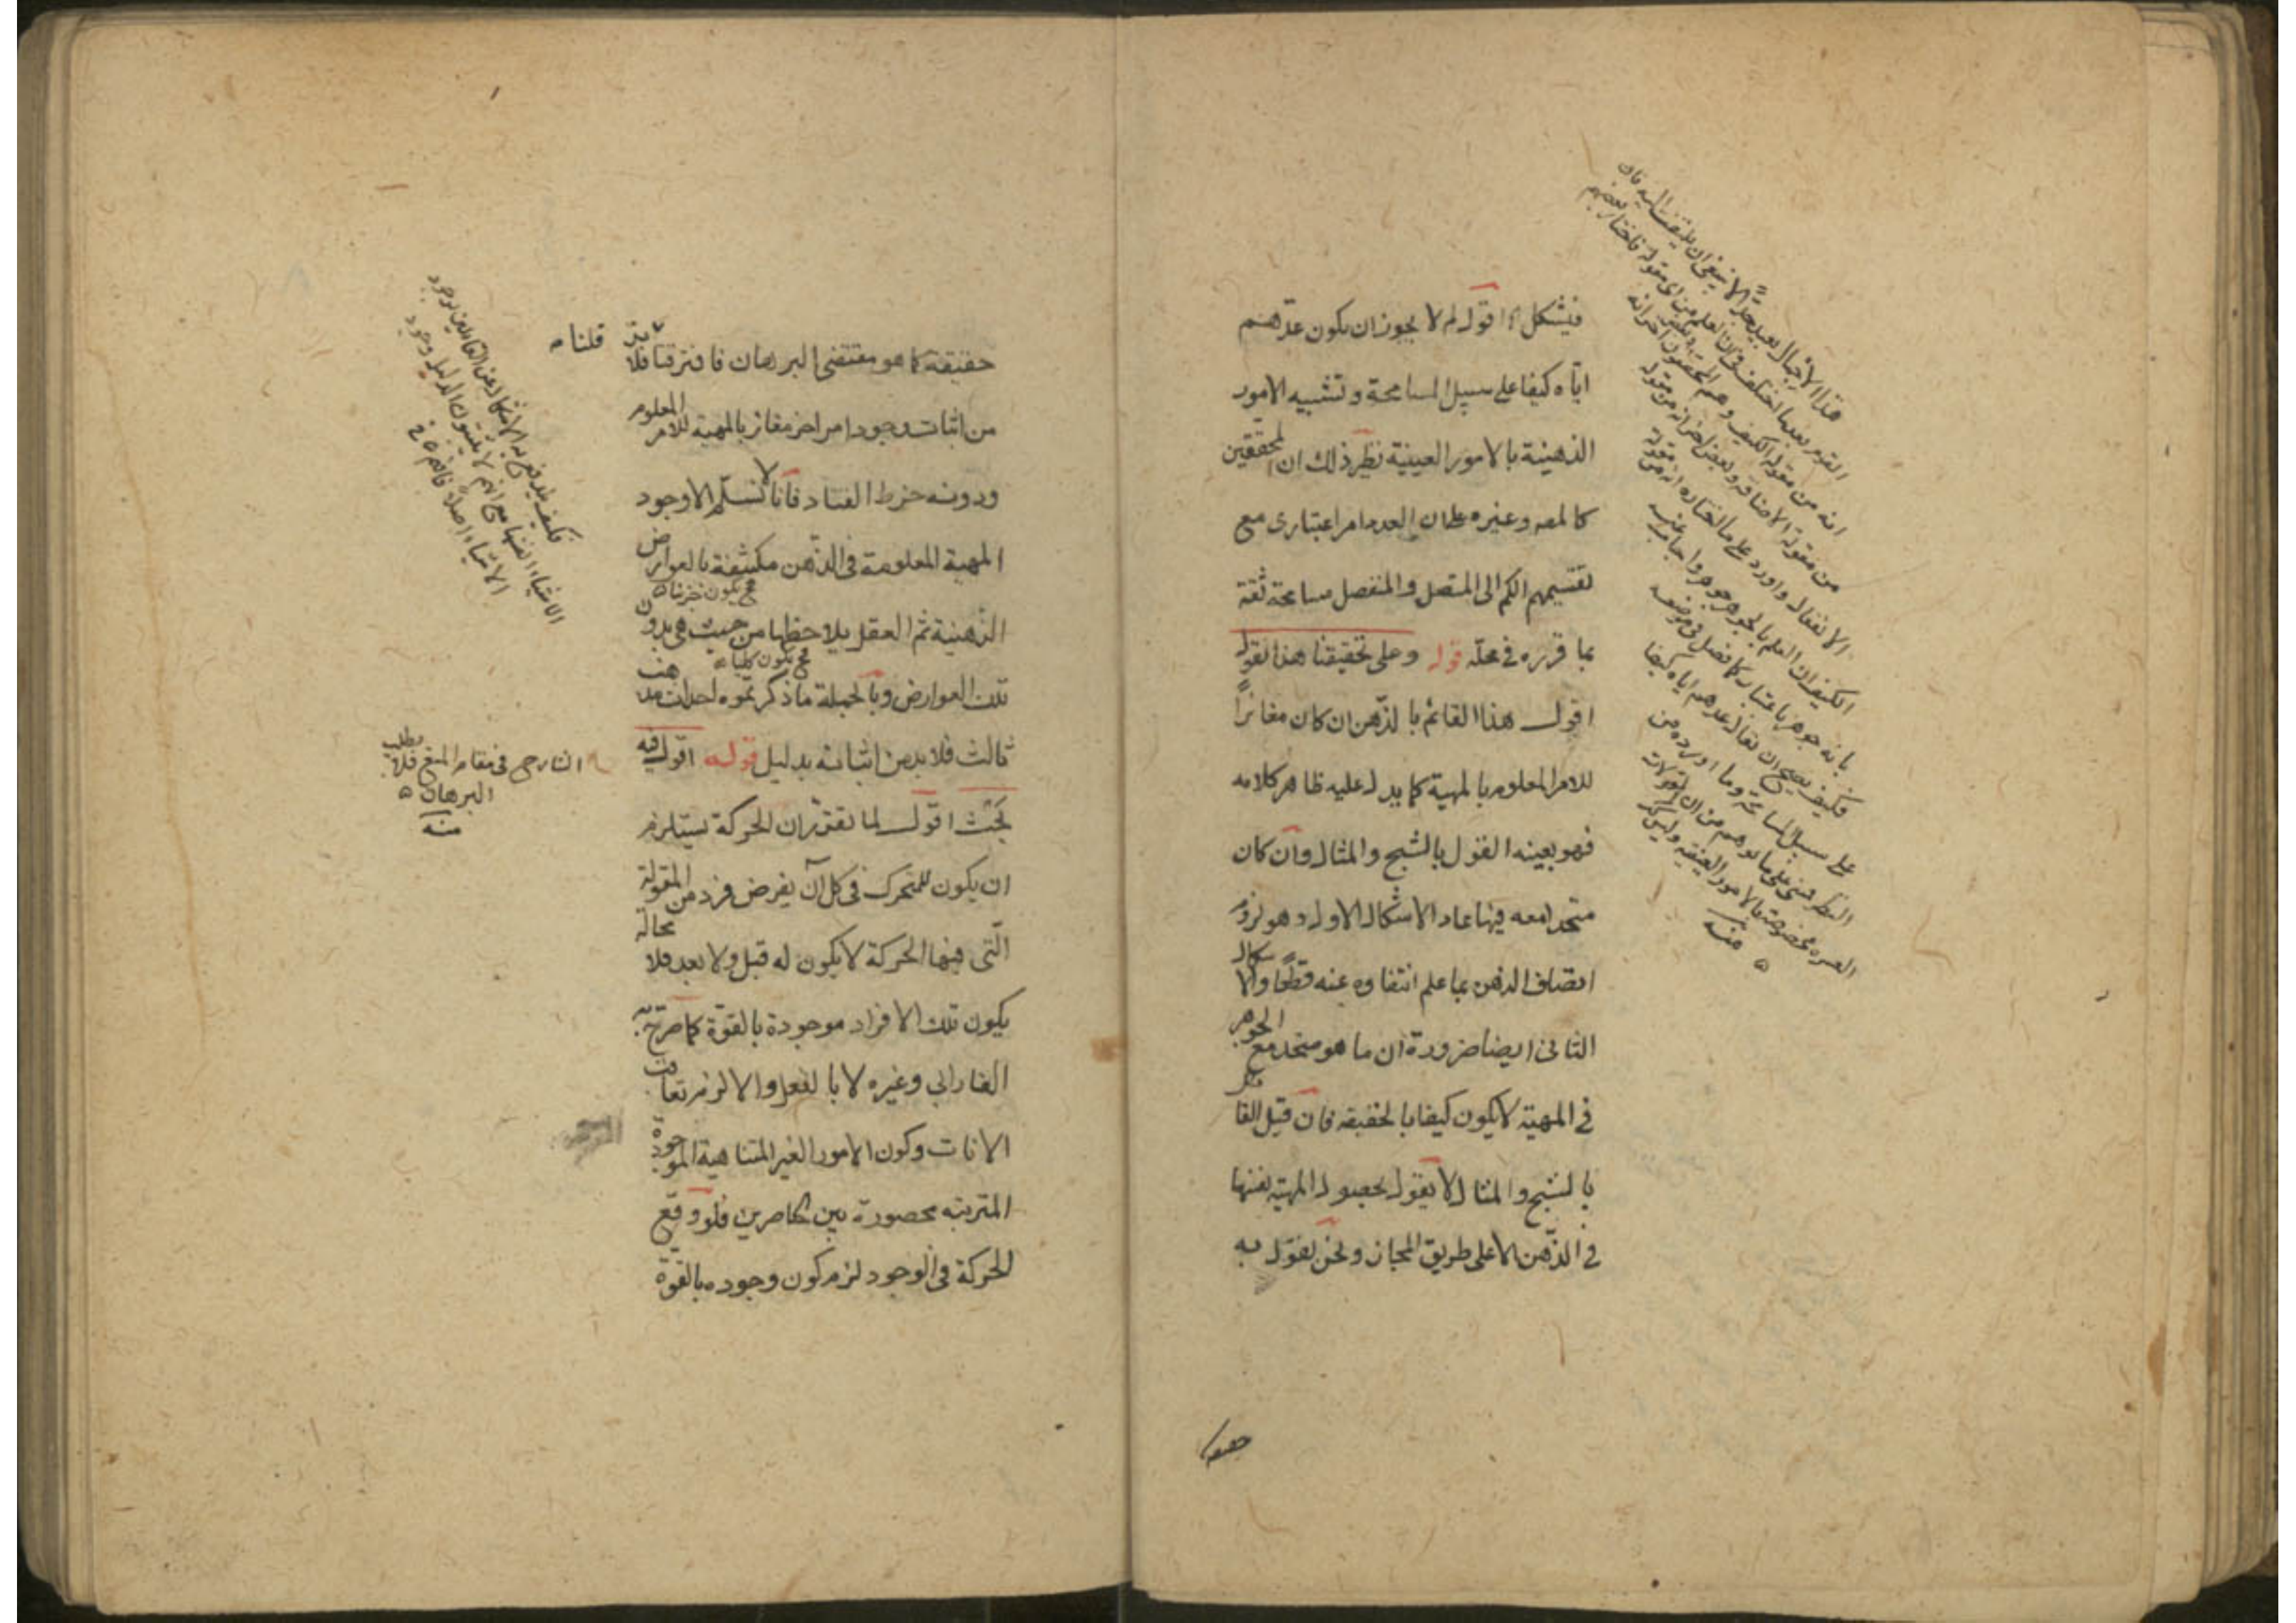 فيشكل اه اقول لم لا يجوز ان يكون عدّهم
ايّاه كيفا على سبيل المسامحة و تشبيه الامور
الذهنية بالامور العينية نظير ذلك ان المحققين
كالمص وغيره على ان العدد امر اعتبارى مع
تقسيمهم الكم الى المتصل والمنفصل مسامحة ثقة
بما قرره فى محلّه قوله وعلى تحقيقنا هذا نقول
اقول هذا القائم بالذّهن ان كان مغائراً
للامر المعلوم بالمهية كما يدل عليه ظاهر كلامه
فهو بعينه القول بالشبح والمثال وان كان
متحدا معه فيها عاد الاشكال الاول وهو لزوم
اتصاف الذهن بما علم انتفاوه عنه قطعًا والاشكال
الثانى ايضا ضرورة ان ما هو متحد مع الجوهر
فى المهية لا يكون كيفا بالحقيقه فان قيل القائل
بالشبح والمثال لا يقول بحصول المهية بنفسها
فى الذّهن الا على طريق المجاز ونحن نقول به
حقيقة
هذا الاحتمال بعيد جدًّا لا ينبغى ان يلتفت اليه فان
القوم بعدما اختلفوا فى ان العلم من اى مقولة فاختار بعضهم
انه من مقولة الكيف وهم المحققون واختار اخر انه
من مقولة الاضافة وبعض اخر انه من مقولة
الانفعال واورد على ما اختاره انه من مقولة
الكيف ان العلم بالجوهر جوهر واجابو عنه
بانه جوهر باعتبار كما فصل فى موضعه
فكيف يصح ان يقال عدهم اياه كيفا
على سبيل المسامحة وما اورده من
النظير مبنى على ما توهم من ان المقولات
العشرة مخصوصة بالامور العينيه وليس كذ
منه
حقيقة كما هو مقتضى البرهان فافترقنا قلنا فلا بدّ
من اثبات وجود امر اخر مغائر بالمهية للامر المعلوم
ودونه خرط القتاد فانا لا نسلّم الا وجود
المهية المعلومة فى الذّهن مكتنفة بالعوارض
الذهنية ثم العقل يلاحظها من حيث هى بدون
فح يكون جزئيا
تلك العوارض وبالجملة ما ذكرتموه احداث مذهب
فح يكون كليا
ثالث فلا بد من اثباته بدليل قوله اقول فيه
بحث اقول لما تقرّر ان الحركة يستلزم
ان يكون للمتحرك فى كل آن يفرض فرد من المقولة
الّتى فيها الحركة لا يكون له قبل ولا بعد فلا محالة
يكون تلك الافراد موجودة بالقوّة كما صرّح به
الفارابى وغيره لا بالفعل والا لزم تعاقب
الانات وكون الامور الغير المتناهية الموجودة
المترتبه محصورة بين حاصرين فلو وقع
الحركة فى الوجود لزم كون وجوده بالقوة
فكيف يندفع به الاشكال عن القائلين بوجود
الاشياء انفسها مع انهم لا يثبتون الدليل وجود
الاشياء اصلًا فافهم
الشارح فى مقام المنع فلا يطلب
البرهان
منه